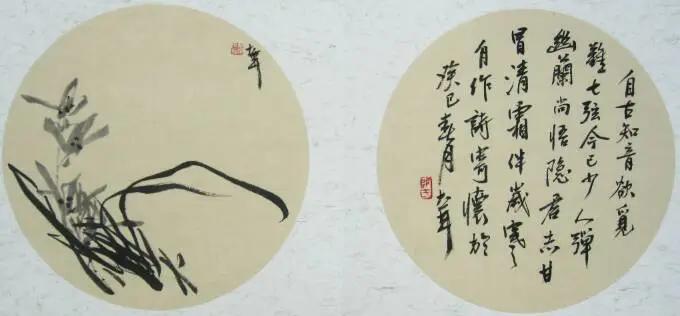 自古知音欲觅
難七弦今已少人彈
幽蘭尚悟隐君志甘
冒清霜伴歲寒
自作詩寄懷於
癸巳春月